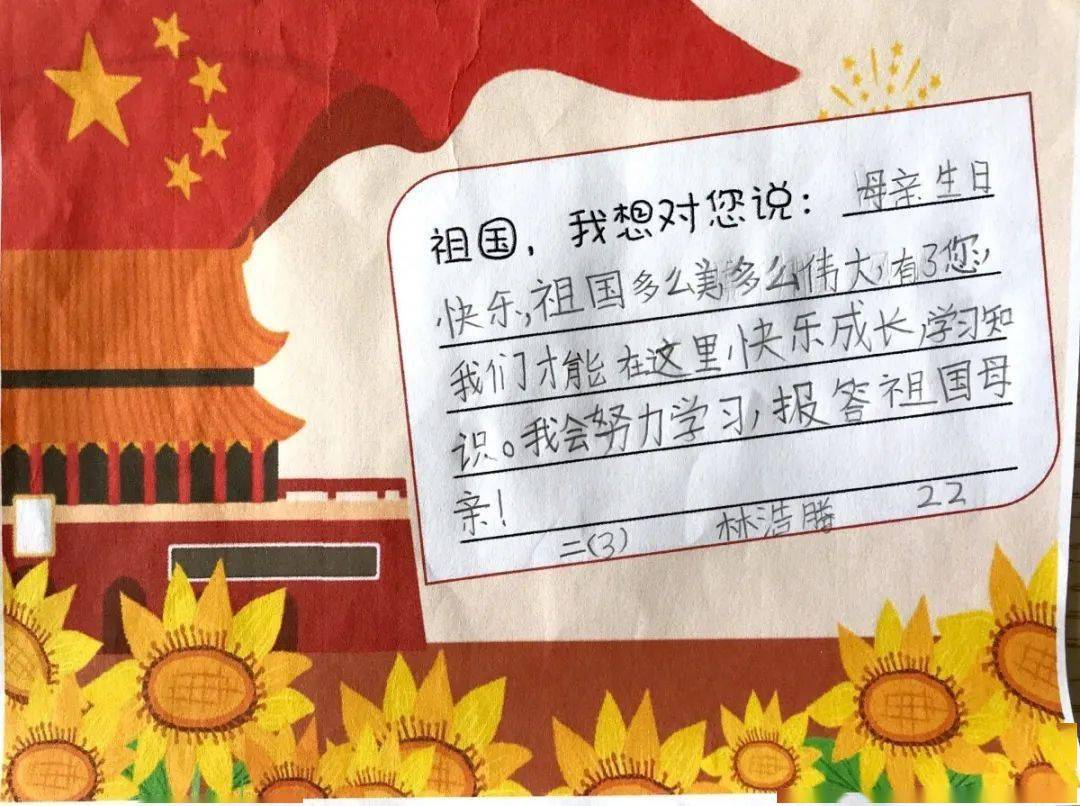 祖国，我想对您说：母亲生日
快乐，祖国多么美多么伟大，有了您，
我们才能在这里快乐成长，学习知
识。我会努力学习，报答祖国母
亲！
二(3) 林浩腾 22